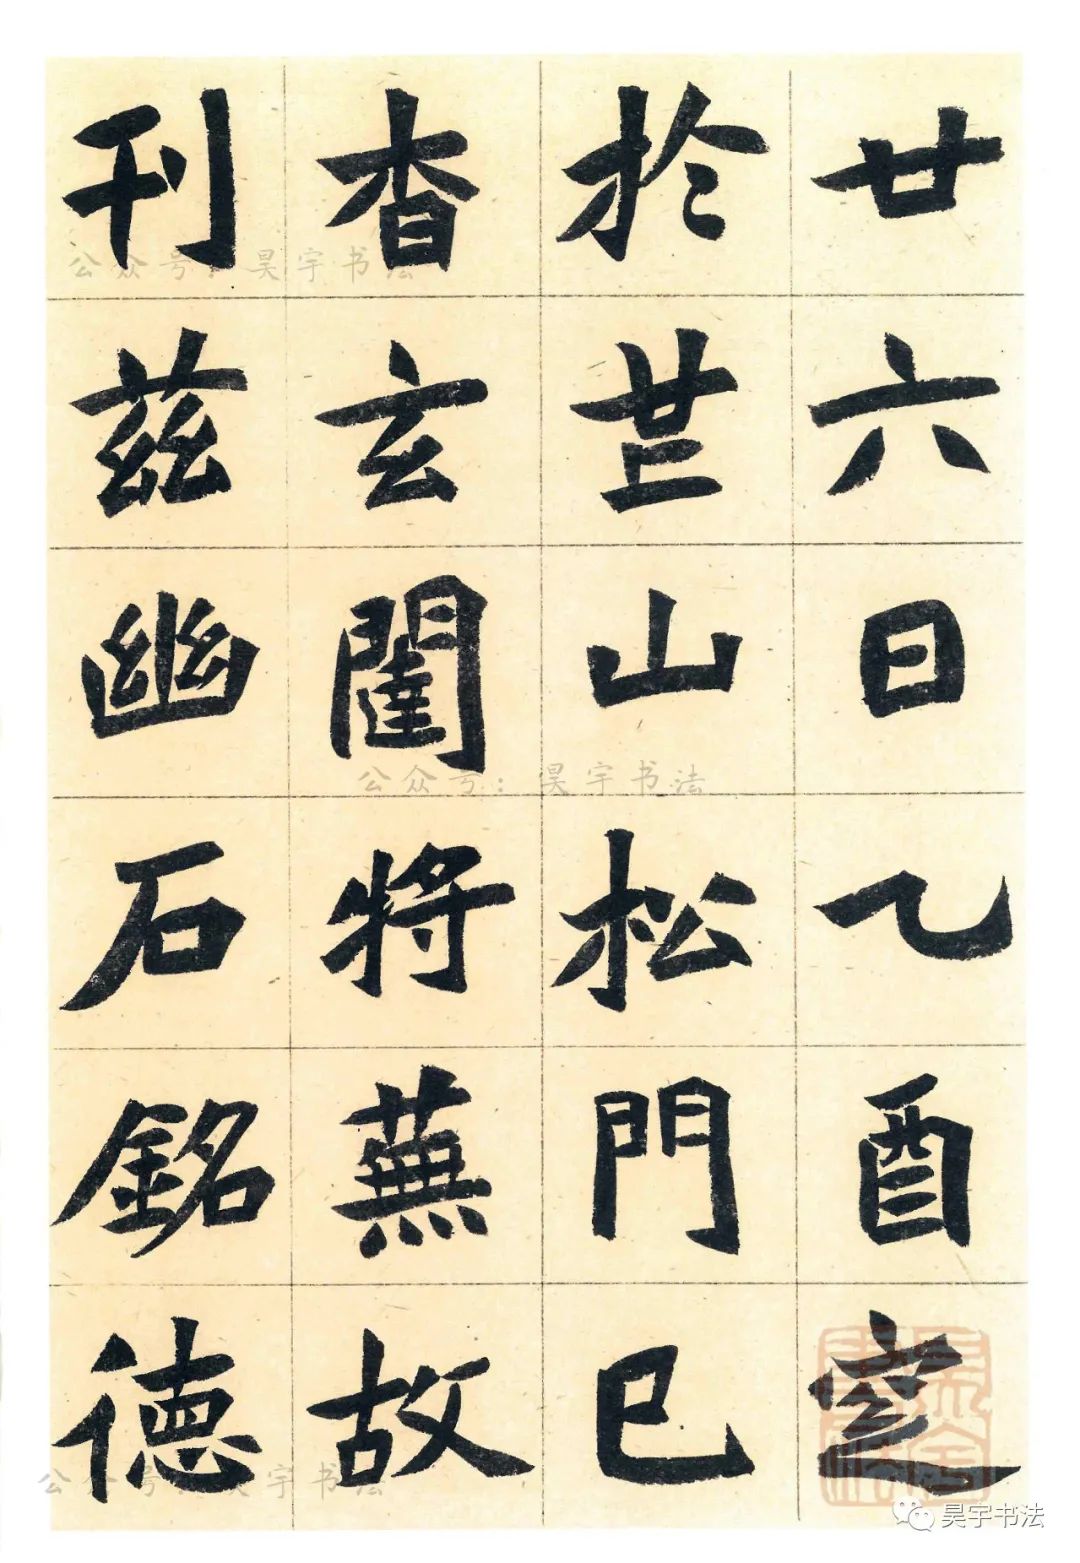 廿六日乙酉窆
於芒山松門已
杳玄闥將蕪故
刊茲幽石銘德
公众号：昊宇书法
公众号：昊宇书法
公众号：昊宇书法
昊宇书法